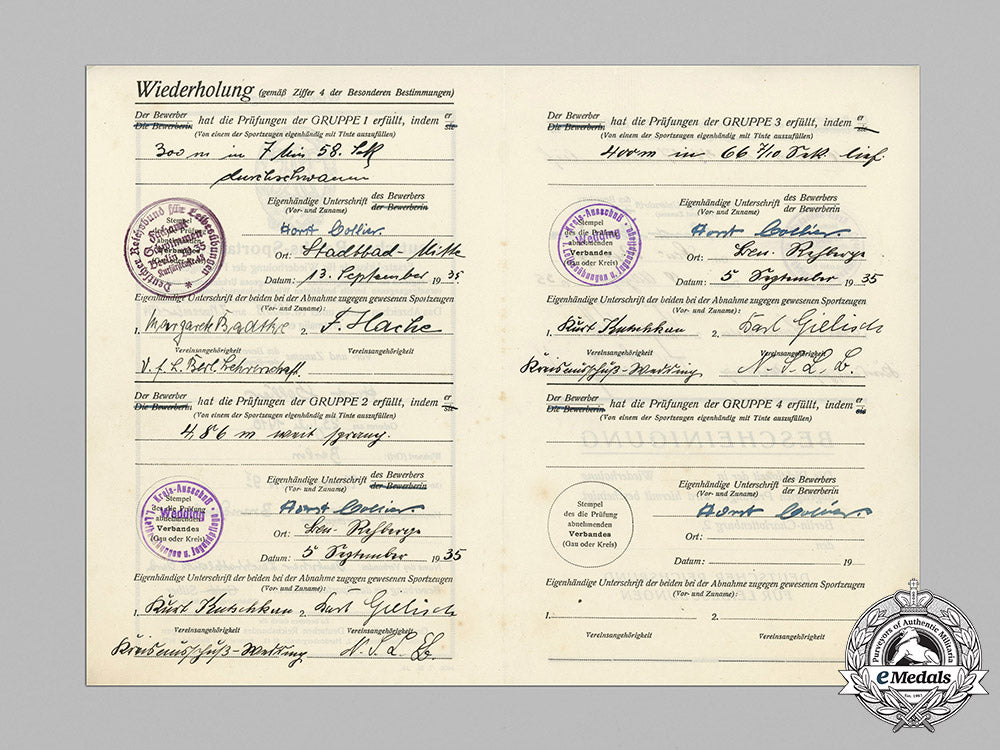 Wiederholung (gemäß Ziffer 4 der Besonderen Bestimmungen)
Der Bewerber
Die Bewerberin hat die Prüfungen der GRUPPE 1 erfüllt, indem er
sie
(Von einem der Sportzeugen eigenhändig mit Tinte auszufüllen)
300 m in 7 Min 58. Sek
durchschwamm
Eigenhändige Unterschrift des Bewerbers
der Bewerberin
(Vor- und Zuname)
Stempel
des die Prüfung
abnehmenden
Verbandes
Deutscher Reichsbund für Leibesübungen
Berlin
Horst Collier
Ort: Stadtbad-Mitte
Datum: 13. September 1935.
Eigenhändige Unterschrift der beiden bei der Abnahme zugegen gewesenen Sportzeugen
(Vor- und Zuname):
1. Margarete Badtke 2. F. Hache
Vereinsangehörigkeit Vereinsangehörigkeit
V. f. L. Berl. Lehrerschaft.
Der Bewerber
Die Bewerberin hat die Prüfungen der GRUPPE 2 erfüllt, indem er
sie
(Von einem der Sportzeugen eigenhändig mit Tinte auszufüllen)
4,86 m weit sprang.
Eigenhändige Unterschrift des Bewerbers
der Bewerberin
(Vor- und Zuname)
Kreis-Ausschuß
Wedding
f. Leibesübungen u. Jugendpflege
Stempel
des die Prüfung
abnehmenden
Verbandes
(Gau oder Kreis)
Horst Collier
Ort: Len. Rehberge
Datum: 5 September 1935
Eigenhändige Unterschrift der beiden bei der Abnahme zugegen gewesenen Sportzeugen
(Vor- und Zuname):
1. Kurt Kutschkau 2. Karl Gielisch
Vereinsangehörigkeit Vereinsangehörigkeit
Kreisausschuß-Wedding N. S. L. B.
Der Bewerber
Die Bewerberin hat die Prüfungen der GRUPPE 3 erfüllt, indem er
sie
(Von einem der Sportzeugen eigenhändig mit Tinte auszufüllen)
400 m in 66 7/10 Sek. lief.
Eigenhändige Unterschrift des Bewerbers
der Bewerberin
(Vor- und Zuname)
Kreis-Ausschuß
Wedding
f. Leibesübungen u. Jugendpflege
Stempel
des die Prüfung
abnehmenden
Verbandes
(Gau oder Kreis)
Horst Collier
Ort: Len. Rehberge
Datum: 5 September 1935
Eigenhändige Unterschrift der beiden bei der Abnahme zugegen gewesenen Sportzeugen
(Vor- und Zuname):
1. Kurt Kutschkau 2. Karl Gielisch
Vereinsangehörigkeit Vereinsangehörigkeit
Kreisausschuß-Wedding N. S. L. B.
Der Bewerber
Die Bewerberin hat die Prüfungen der GRUPPE 4 erfüllt, indem er
sie
(Von einem der Sportzeugen eigenhändig mit Tinte auszufüllen)
Eigenhändige Unterschrift des Bewerbers
der Bewerberin
(Vor- und Zuname)
Stempel
des die Prüfung
abnehmenden
Verbandes
(Gau oder Kreis)
Horst Collier
Ort:
Datum: 19
Eigenhändige Unterschrift der beiden bei der Abnahme zugegen gewesenen Sportzeugen
(Vor- und Zuname):
1. 2.
Vereinsangehörigkeit Vereinsangehörigkeit
Purveyors of Authentic Militaria
eMedals